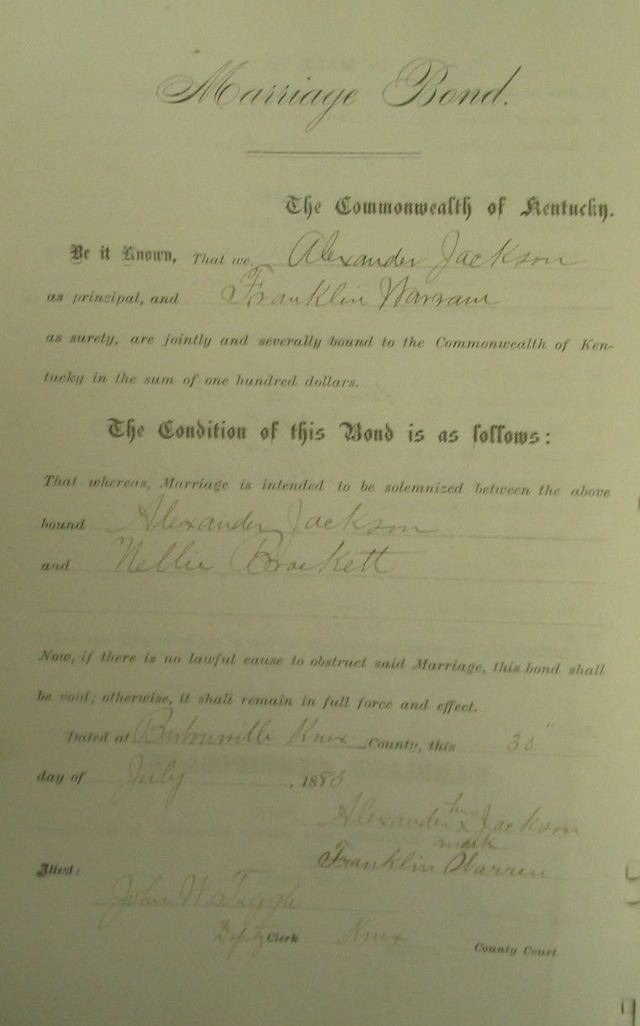 Marriage Bond.
The Commonwealth of Kentucky.
Be it Known, That we, Alexander Jackson
as principal, and Franklin Warram
as surety, are jointly and severally bound to the Commonwealth of Ken-
tucky in the sum of one hundred dollars.
The Condition of this Bond is as follows:
That whereas, Marriage is intended to be solemnized between the above
bound Alexander Jackson
and Nellie Brockett
Now, if there is no lawful cause to obstruct said Marriage, this bond shall
be void; otherwise, it shall remain in full force and effect.
Dated at Barbourville Knox County, this 30"
day of July, 1883
his
Alexander x Jackson
mark
Franklin Warren
Attest:
John W. Tuggle
Deputy Clerk Knox County Court